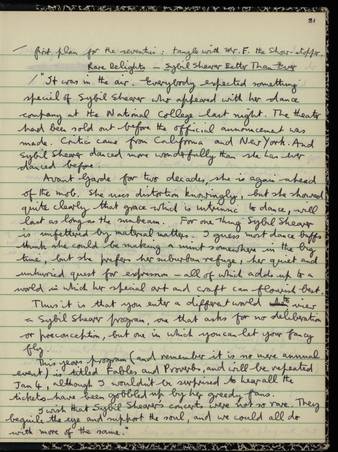 31
first plan for the seventies; tangle with Mr. F. the Show-stopper
Rare Delights – Sybil Shearer Better Than Ever
"It was in the air. Everybody expected something
special of Sybil Shearer who appeared with her dance
company at the National College last night. The theater
had been sold out before the official announcement was
made. Critics came from California and New York. And
Sybil Shearer danced more wonderfully than she has ever
danced before.
Avant Garde for two decades, she is again ahead
of the mob. She uses distortion knowingly, but she showed
quite clearly that grace which is intrinsic to dance, will
last as long as the sunbeam. For one thing Sybil Shearer
is unfettered by material matters. I guess most dance buffs
think she could be making a mint somewhere in the big
time, but she prefers her suburban refuge, her quiet and
unhurried quest for expression – all of which adds up to a
world in which her special art and craft can flourish best.
Thus it is that you enter a different world view
a Sybil Shearer program, one that asks for no deliberation
or preconception, but one in which you can let your fancy
fly.
This years program (and remember it is no mere annual
event) is titled Fables and Proverbs, and will be repeated
Jan 4, although I wouldn't be surprised to hear all the
tickets have been gobbled up by her greedy fans.
I wish that Sybil Shearer's concerts were not so rare. They
beguile the eye and support the soul, and we could all do
with more of the same."